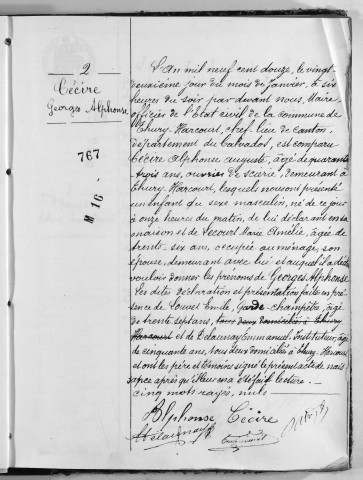 2
Cécire
Georges Alphonse
767
M 16
L'an mil neuf cent douze, le vingt
deuxième jour du mois de Janvier, à six
heures du soir par devant nous, Maire
officier de l'Etat civil de la commune de
Thury-Harcourt, chef lieu de canton,
département du Calvados, est comparu
Cécire Alphonse Auguste, âgé de quarante
trois ans, ouvrier de scierie, demeurant à
Thury-Harcourt, lesquels nous ont présenté
un enfant du sexe masculin, né de ce jour
à onze heures du matin, de lui déclarant en sa
maison et de Lecourt Marie Amélie, âgée de
trente-six ans, occupée au ménage, son
épouse, demeurant avec lui et auquel il a déclaré
vouloir donner les prénoms de Georges Alphonse
Les dites déclaration et présentation faites en pré
sence de Louvet Emile, Garde-champêtre, âgé
de trente sept ans, tous deux domiciliés à Thury
Harcourt et de Delaunay Emmanuel, Instituteur, âgé
de cinquante ans, tous deux domiciliés à Thury-Harcourt
et ont les père et témoins signé le présent acte de nais
sance après qu'il leur en a été fait lecture. _
cinq mots rayés, nuls
Alphonse Cécire
Delaunay